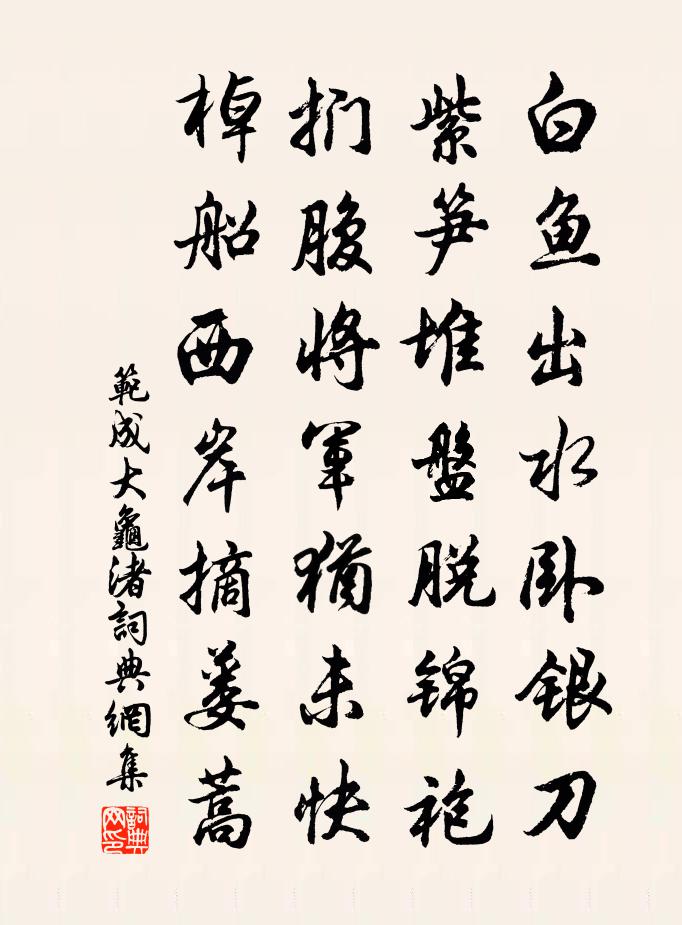 白鱼出水卧银刀
紫笋堆盘脱锦袍
捫腹将军猶未快
棹船西岸摘蒌蒿
範成大龜渚詞典網集
詞典网印